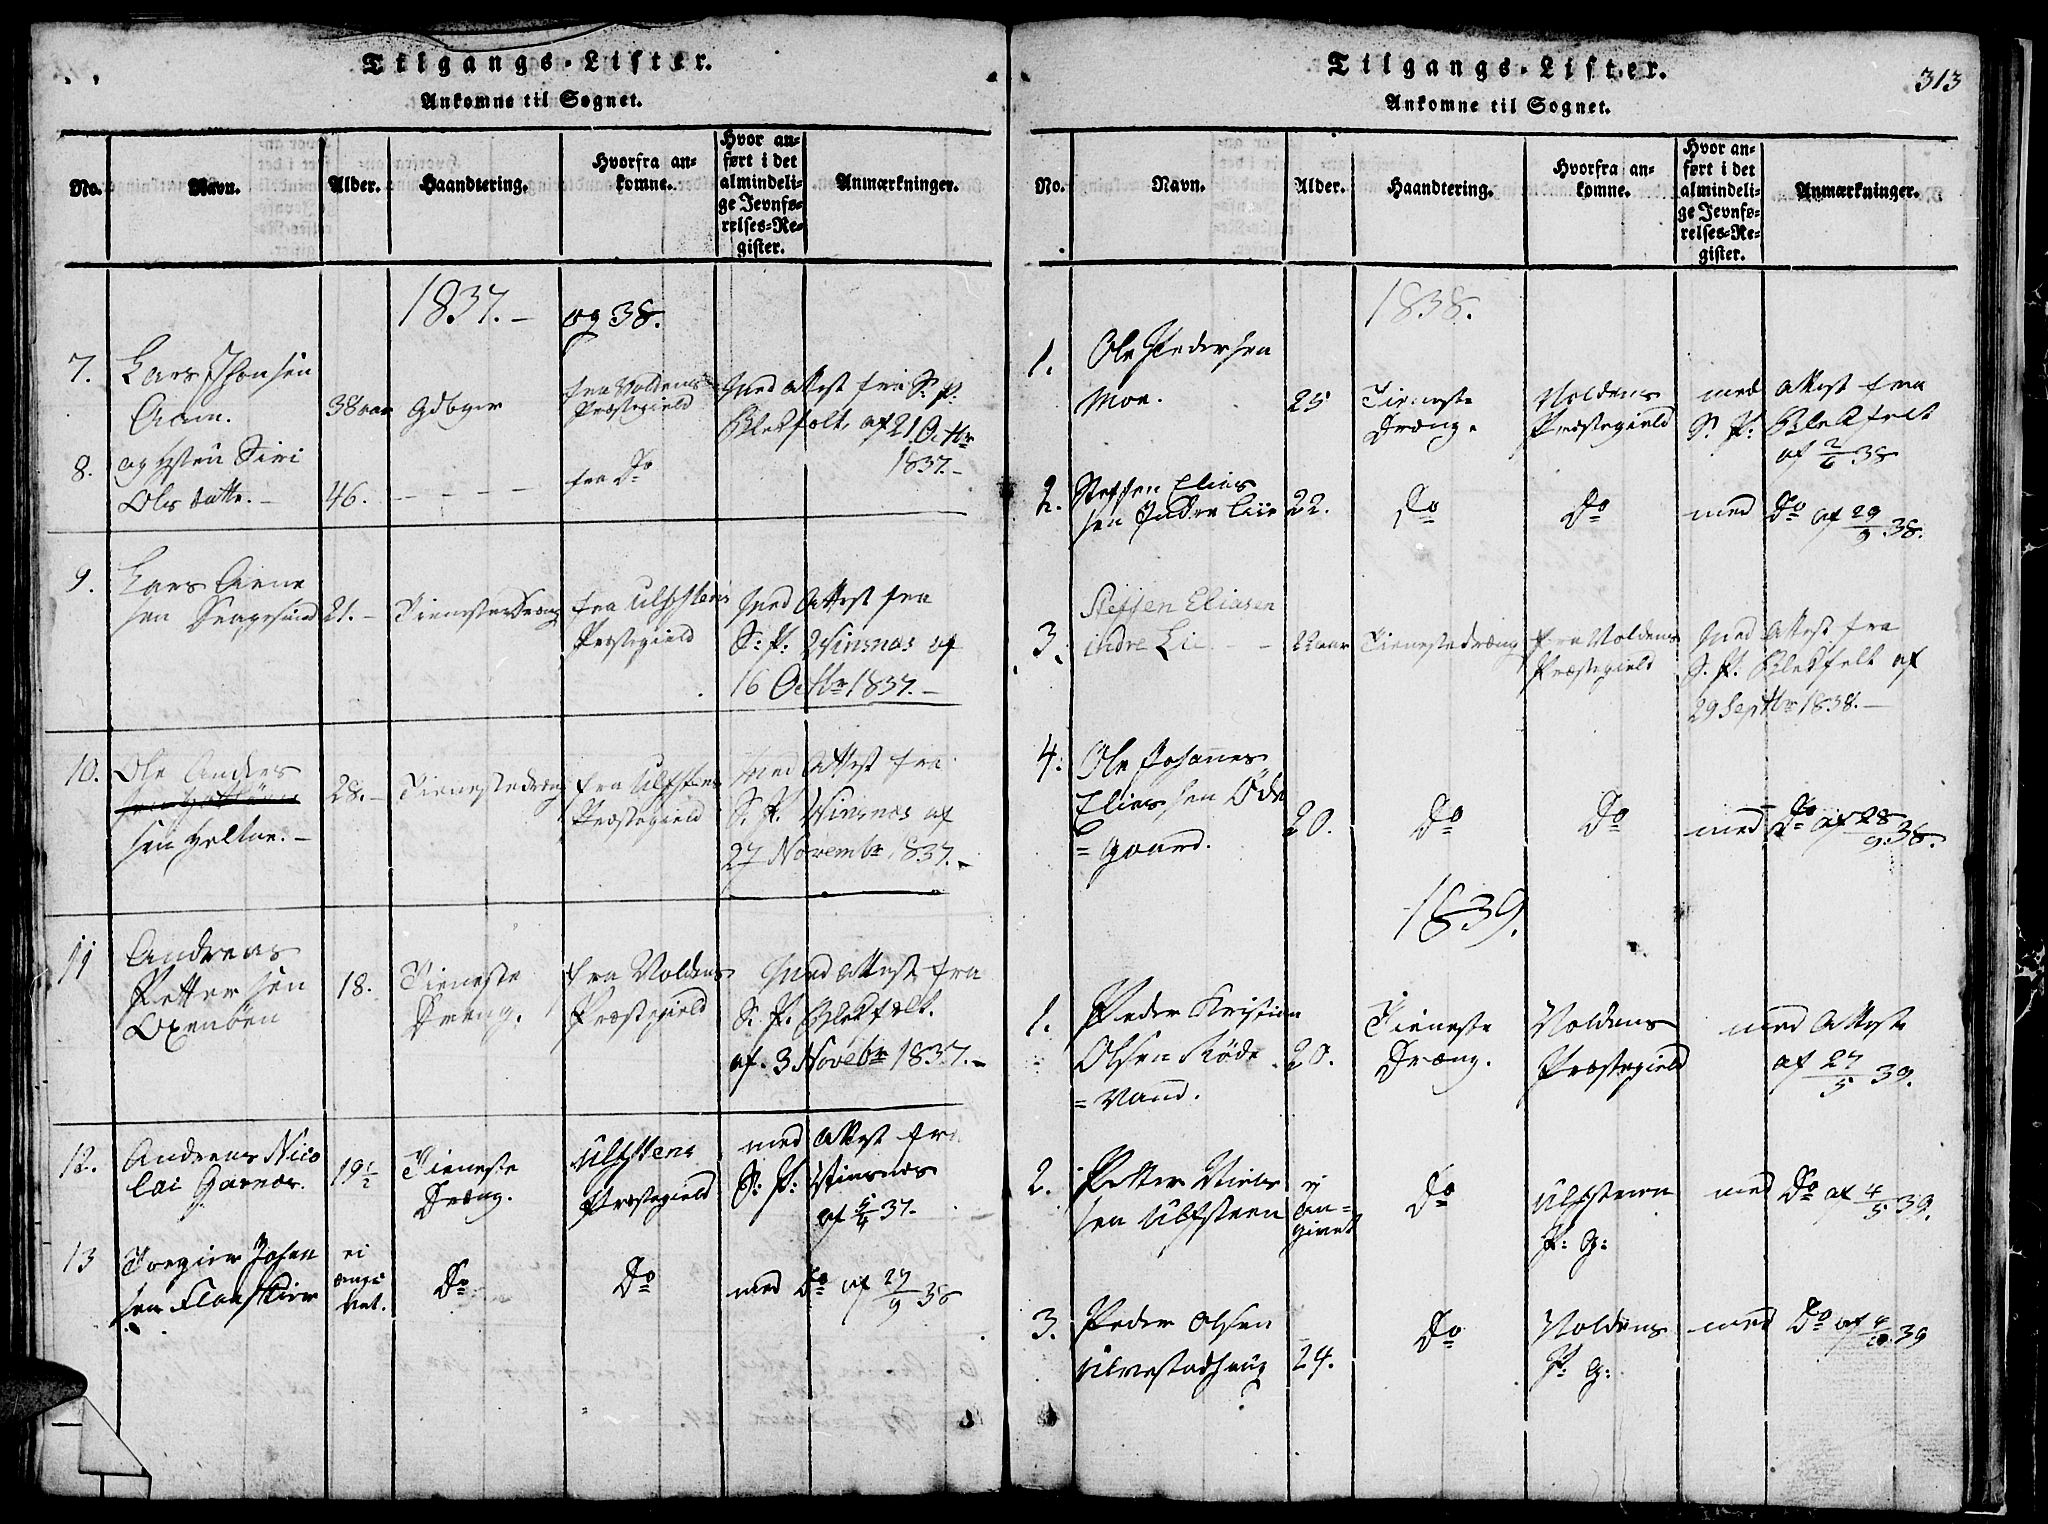 Tilgangs-Lister.
Ankomne til Sognet.
No.
Navn.
Alder.
Haandtering.
Hvorfra an-
komne.
Hvor an-
ført i det
almindeli-
ge Jevnfø-
relses-Re-
gister.
Anmærkninger.
1837.- og 38.
7. Lars Jhonsen
Aam. 38 aar Gdbger fra Voldens Præstegield Med Attest fra S. P. Blekfelt, af 21 Octbr 1837.-
8. og Hstru Siri
Ols datter.- 46. - - - - fra Do
9. Lars Arne
sen 21.- Tienestedreng fra Ulfstens Præstegield Med Attest fra
S: P. Winsnæs af
16 Octbr 1837.-
10. Ole Anders
sen Heltne.- 28.- Tienestedreng fra Ulfstens Præstegield Med Attest fra
S. P. Winsnæs af
27 Novembr. 1837.-
11 Andreas
Petter sen
Oxenöen 18. Tieneste
Dreng. fra Voldens
Præstegield Med Attest fra
S. P. Blekfelt.
af. 3 Novebr 1837.-
12. Andreas Nico
lai Garnæs. 19 1/2 Tieneste
Dræng. Ulfstens
Præstegield med Attest fra
S: P: Winsnæs
af 5/4 37.
13 Johan
sen ei
angi
vet. Do Do med Do af 27/9 38
Tilgangs-Lister.
313
Ankomne til Sognet.
No.
Navn.
Alder.
Haandtering.
Hvorfra an-
komne.
Hvor an-
ført i det
almindeli-
ge Jevnfø-
relses-Re-
gister.
Anmærkninger.
1838.
1. Ole Pedersen
Moe. 25 Tieneste
Dræng. Voldens
Præstegield med Attest fra
S. P: Blekfelt
af 2/6 38
2. Steffen Elias
sen Indre Lie 22. Do Do med Do af 29/9 38.
3. Steffen Eliasen
indre Lie - - 22 aar Tienestedræng fra Voldens
Præstegield Med Attest fra
S. P. Blekfelt af
29 Septbr 1838.-
4. Ole Johannes
Elias sen Öde
= gaard. 20. Do Do med Do af 28/9 38.
1839.
1. Peder Kristian
Olsen Röde
= Vand. 20. Tieneste
Dræng. Voldens
Præstegield med Attest
af 27/5 39.
2. Petter Niels
sen Ulfsteen ej
an=
givet Do Ulfsteen
P: G: med Do af 4/5 39.
3. Peder Olsen
24. Do Voldens
P: G: med Do af 4/10 39